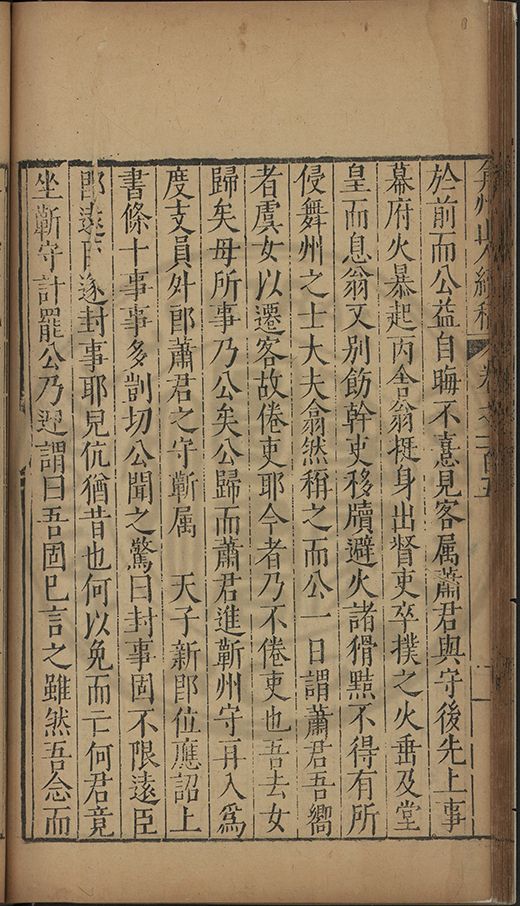 弇州山人續稿 卷之一百五
於前而公益自晦不憙見客属蕭君與守後先上事
幕府火暴起丙舍翁挺身出督吏卒撲之火垂及堂
皇而息翁又別飭幹吏移牘避火諸猾黠不得有所
侵舞州之士大夫翕然稱之而公一日謂蕭君吾嚮
者虞女以遷客故倦吏耶今者乃不倦吏也吾去女
歸矣毋所事乃公矣公歸而蕭君進蘄州守再入爲
度支員外郎蕭君之守蘄属 天子新即位應詔上
書條十事事多剴切公聞之驚曰封事固不限遠臣
即遠臣遂封事耶兒伉猶昔也何以免而亡何君竟
坐蘄守計罷公乃迎謂曰吾固已言之雖然吾念而